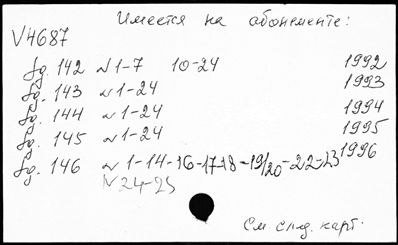 Имеется на абонементе:
V4687
Jg. 142 N 1-7 10-24 1992
Jg. 143 N 1-24 1993
Jg. 144 N 1-24 1994
Jg. 145 N 1-24 1995
Jg. 146 N 1-14-16-17-18-19/20-22-23 1996
N 24-25
См след. карт.